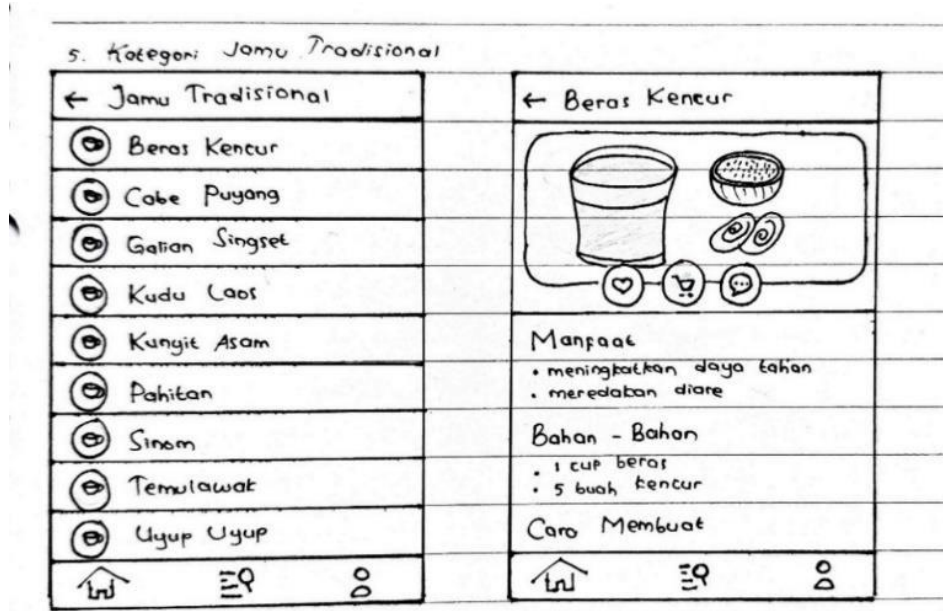 5. Kategori Jamu Tradisional
← Jamu Tradisional
Beras Kencur
Cabe Puyang
Galian Singset
Kudu Laos
Kunyit Asam
Pahitan
Sinom
Temulawak
Uyup Uyup
← Beras Kencur
Manfaat
• meningkatkan daya tahan
• meredakan diare
Bahan - Bahan
• 1 cup beras
• 5 buah kencur
Cara Membuat